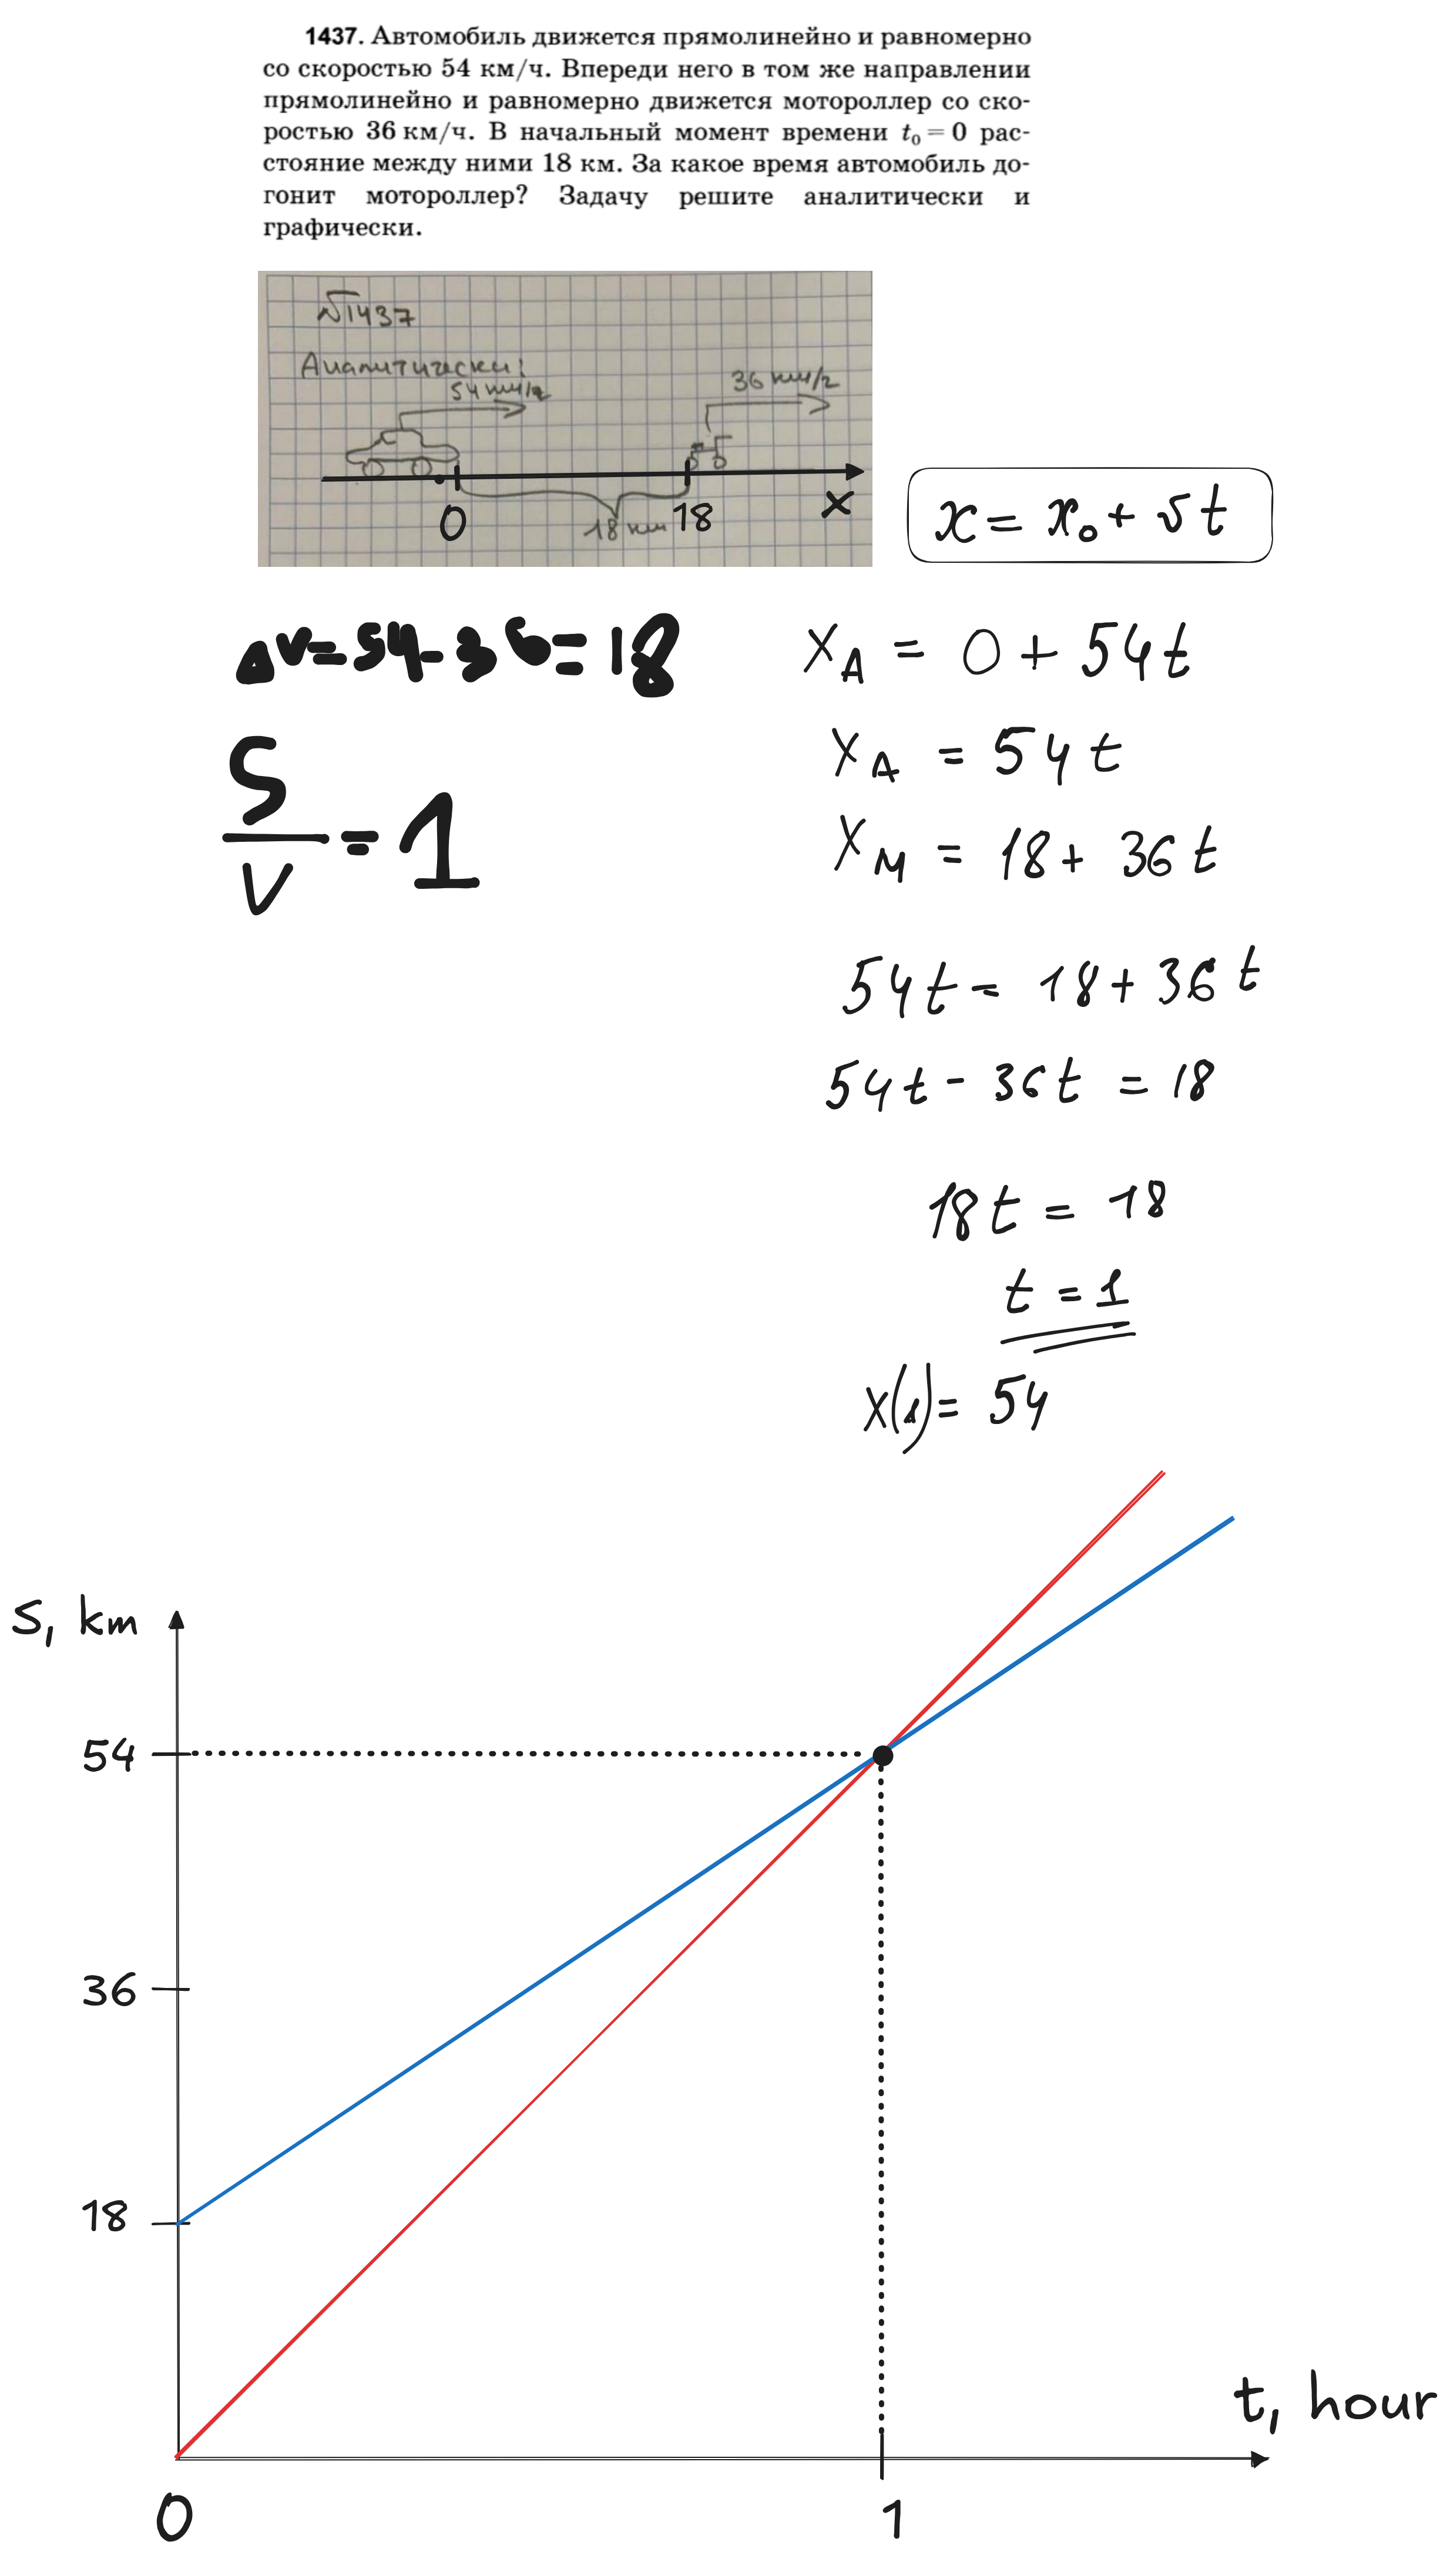 1437. Автомобиль движется прямолинейно и равномерно
со скоростью 54 км/ч. Впереди него в том же направлении
прямолинейно и равномерно движется мотороллер со ско-
ростью 36 км/ч. В начальный момент времени t₀ = 0 рас-
стояние между ними 18 км. За какое время автомобиль до-
гонит мотороллер? Задачу решите аналитически и
графически.
№1437
Аналитически:
54 км/ч
36 км/ч
0
18 км
18
x
x = x₀ + vt
Δv = 54 - 36 = 18
S/V = 1
x_A = 0 + 54t
x_A = 54t
x_M = 18 + 36t
54t = 18 + 36t
54t - 36t = 18
18t = 18
t = 1
x(1) = 54
S, km
54
36
18
t, hour
0
1